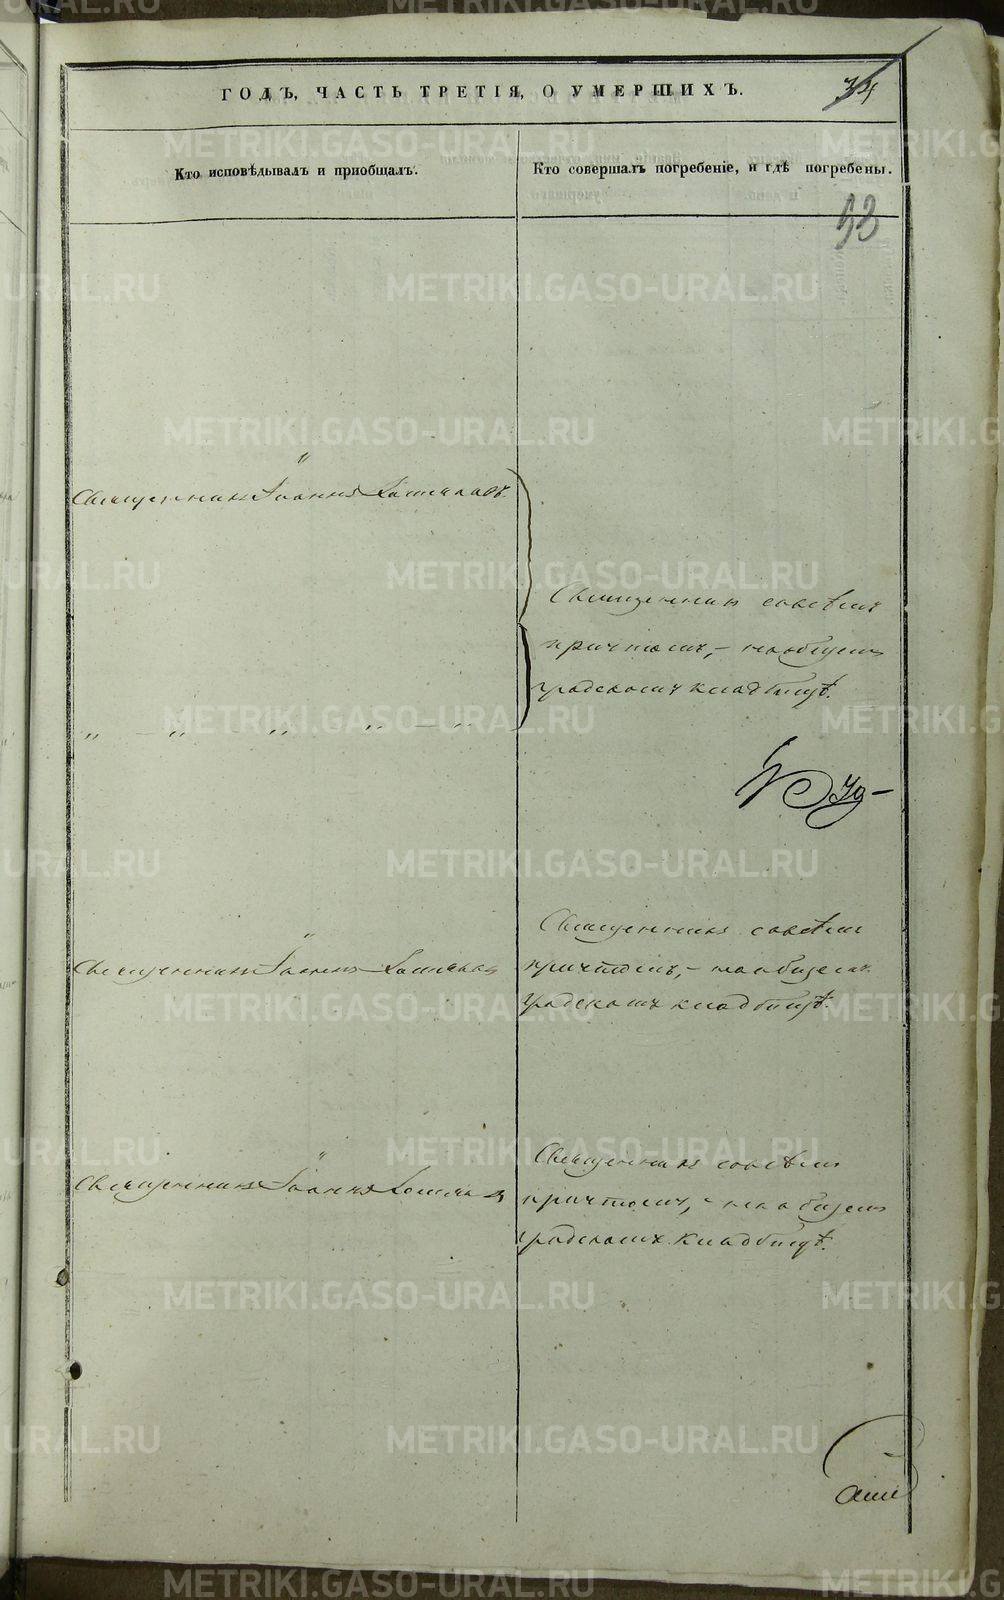 ГОДЪ, ЧАСТЬ ТРЕТІЯ, О УМЕРШИХЪ.
34
Кто исповѣдывалъ и пріобщалъ.
Кто совершалъ погребеніе, и гдѣ погребены.
53
Священникъ Іоаннъ
Священникъ совсѣмъ
причтомъ, – наобщемъ
градскомъ кладбищѣ.
„ – „ – „ „ – „
Священникъ совсѣмъ
Священникъ Іоаннъ
причтомъ, – наобщемъ
градскомъ кладбищѣ.
Священникъ совсѣмъ
Священникъ Іоаннъ
причтомъ, – наобщемъ
градскомъ кладбищѣ.
METRIKI.GASO-URAL.RU